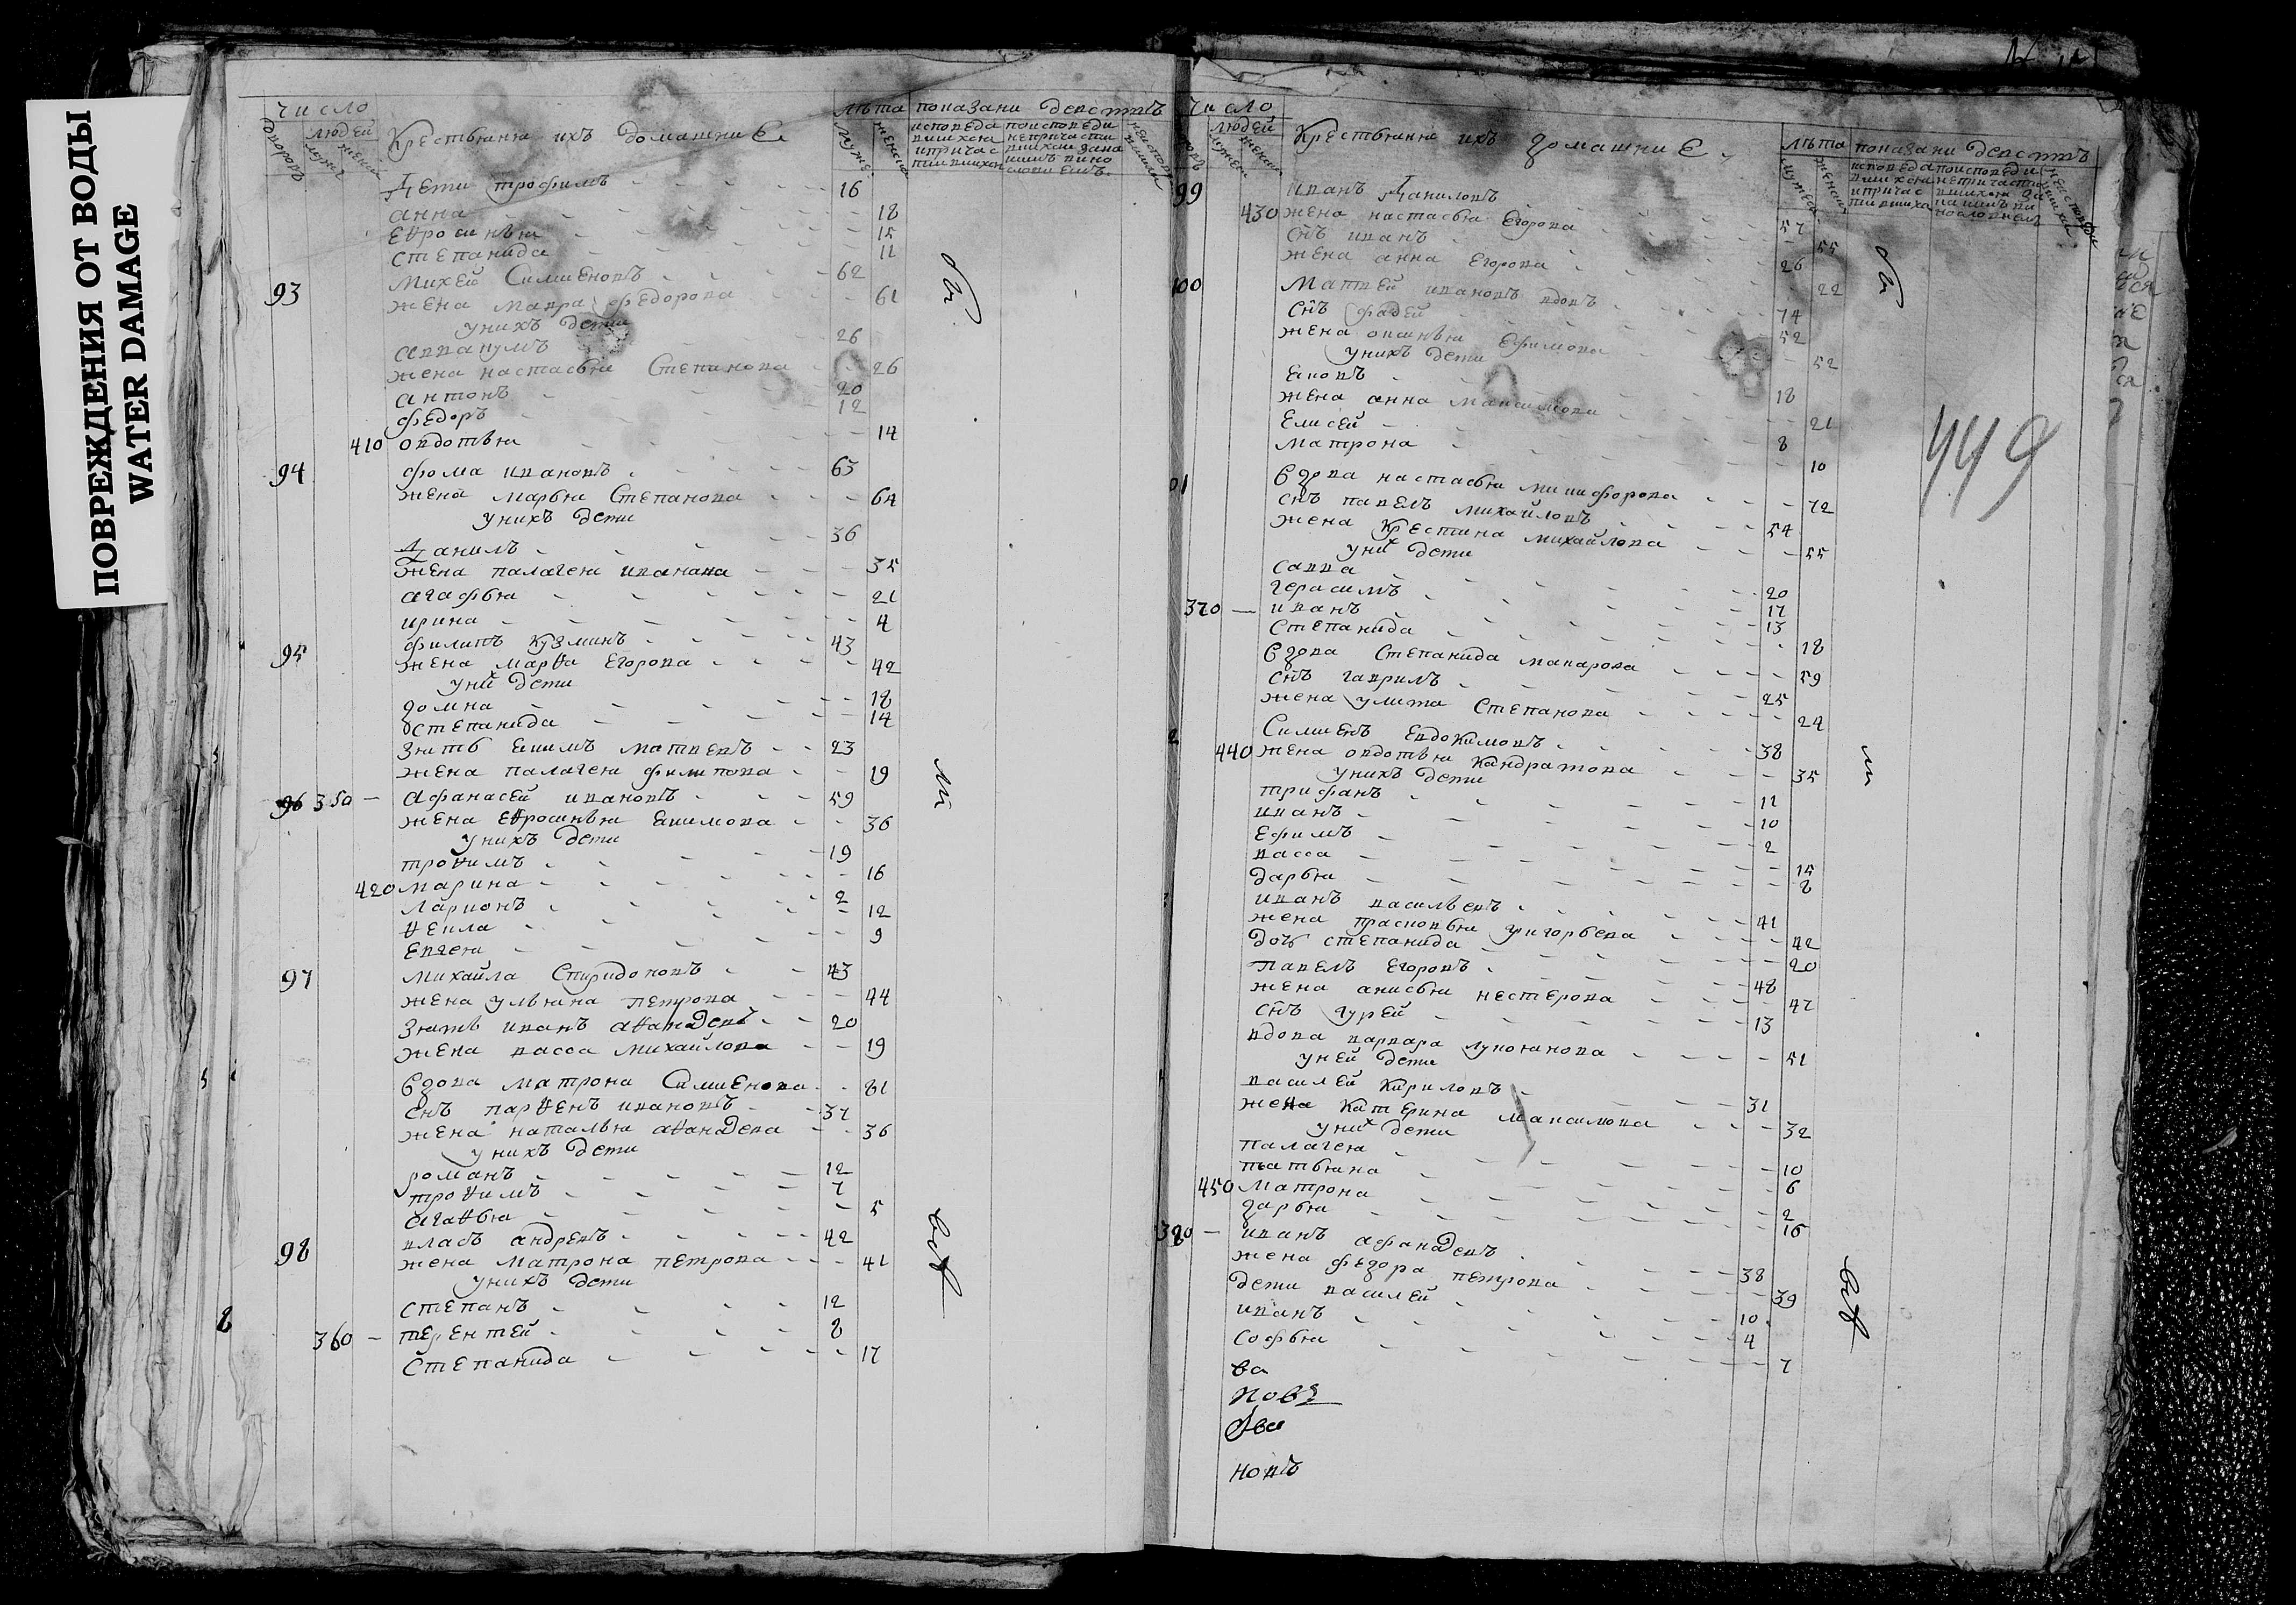 ПОВРЕЖДЕНИЯ ОТ ВОДЫ
WATER DAMAGE
число
лѣта показани дѣйствъ
дворовъ людей Крестьяня ихъ домашние
мужеска женска
Дети трофимъ 16
анна 18
еѵросинья 15
степанида 11
93 Михей Симиеновъ 62
жена Мавра федорова 61
унихъ дети
26
жена настасья Степанова 26
антонъ 20
федоръ 12
410 овдотья 14
94 фома ивановъ 63
жена марья Степанова 64
унихъ дети
Данилъ 36
жена палагея ивановна 35
агафья 21
ирина 4
95 филипъ Кузминъ 43
жена марѳа Егорова 42
уних дети
домна 18
степанида 14
Зять екимъ матвеевъ 23
жена палагея филипова 19
96 350 Афанасей ивановъ 59
жена еѵросинья екимова 36
унихъ дети
троѳимъ 19
420 марина 16
Ларионъ 2
ѳекла 12
Евгея 9
97 михайла Спиридоновъ 43
жена ульяна петрова 44
Зять иванъ аѳанасевъ 20
жена васса михайлова 19
вдова матрона Симиенова 81
снъ парѳенъ ивановъ 37
жена наталья аѳанасева 36
унихъ дети
романъ 12
троѳимъ 7
агаѳья 5
98 власъ андревъ 42
жена матрона петрова 41
унихъ дети
степанъ 12
360 терентей 8
Степанида 17
число
Крестьяня ихъ домашние
лѣта показани дѣйствъ
99 иванъ Даниловъ 57
430 жена настасья Егорова 55
снъ иванъ 26
жена анна Егорова 22
100 Матвей ивановъ вдовъ 74
снъ фадей 52
жена оксинья Ефимова 52
унихъ дети
Яковъ 18
жена анна максимова 21
Елисей 8
матрона 10
01 вдова настасья микифорова 72
снъ павелъ михайловъ 54
жена Крестина михайлова 55
уних дети
савва 20
герасимъ 17
370 иванъ 13
Степанида 18
вдова Степанида макарова 59
снъ гаврилъ 25
жена улита Степанова 24
2 Симиенъ Евдокимовъ 38
440 жена овдотья Кандратова 35
унихъ дети
трифанъ 11
иванъ 10
Ефимъ 2
васса 15
дарья 8
иванъ васильевъ 41
жена прасковья григорьева 42
дочь степанида 20
павелъ Егоровъ 48
жена анисья нестерова 47
снъ гурей 13
вдова варвара лукоянова 51
уней дети
василей Кириловъ 31
жена Катерина максимова 32
уних дети
палагея 10
татьяна 6
450 Матрона 2
дарья 16
380 иванъ афанасевъ 38
жена федора петрова 39
дети василей 10
иванъ 4
софья 7
ва
повз
новъ
449